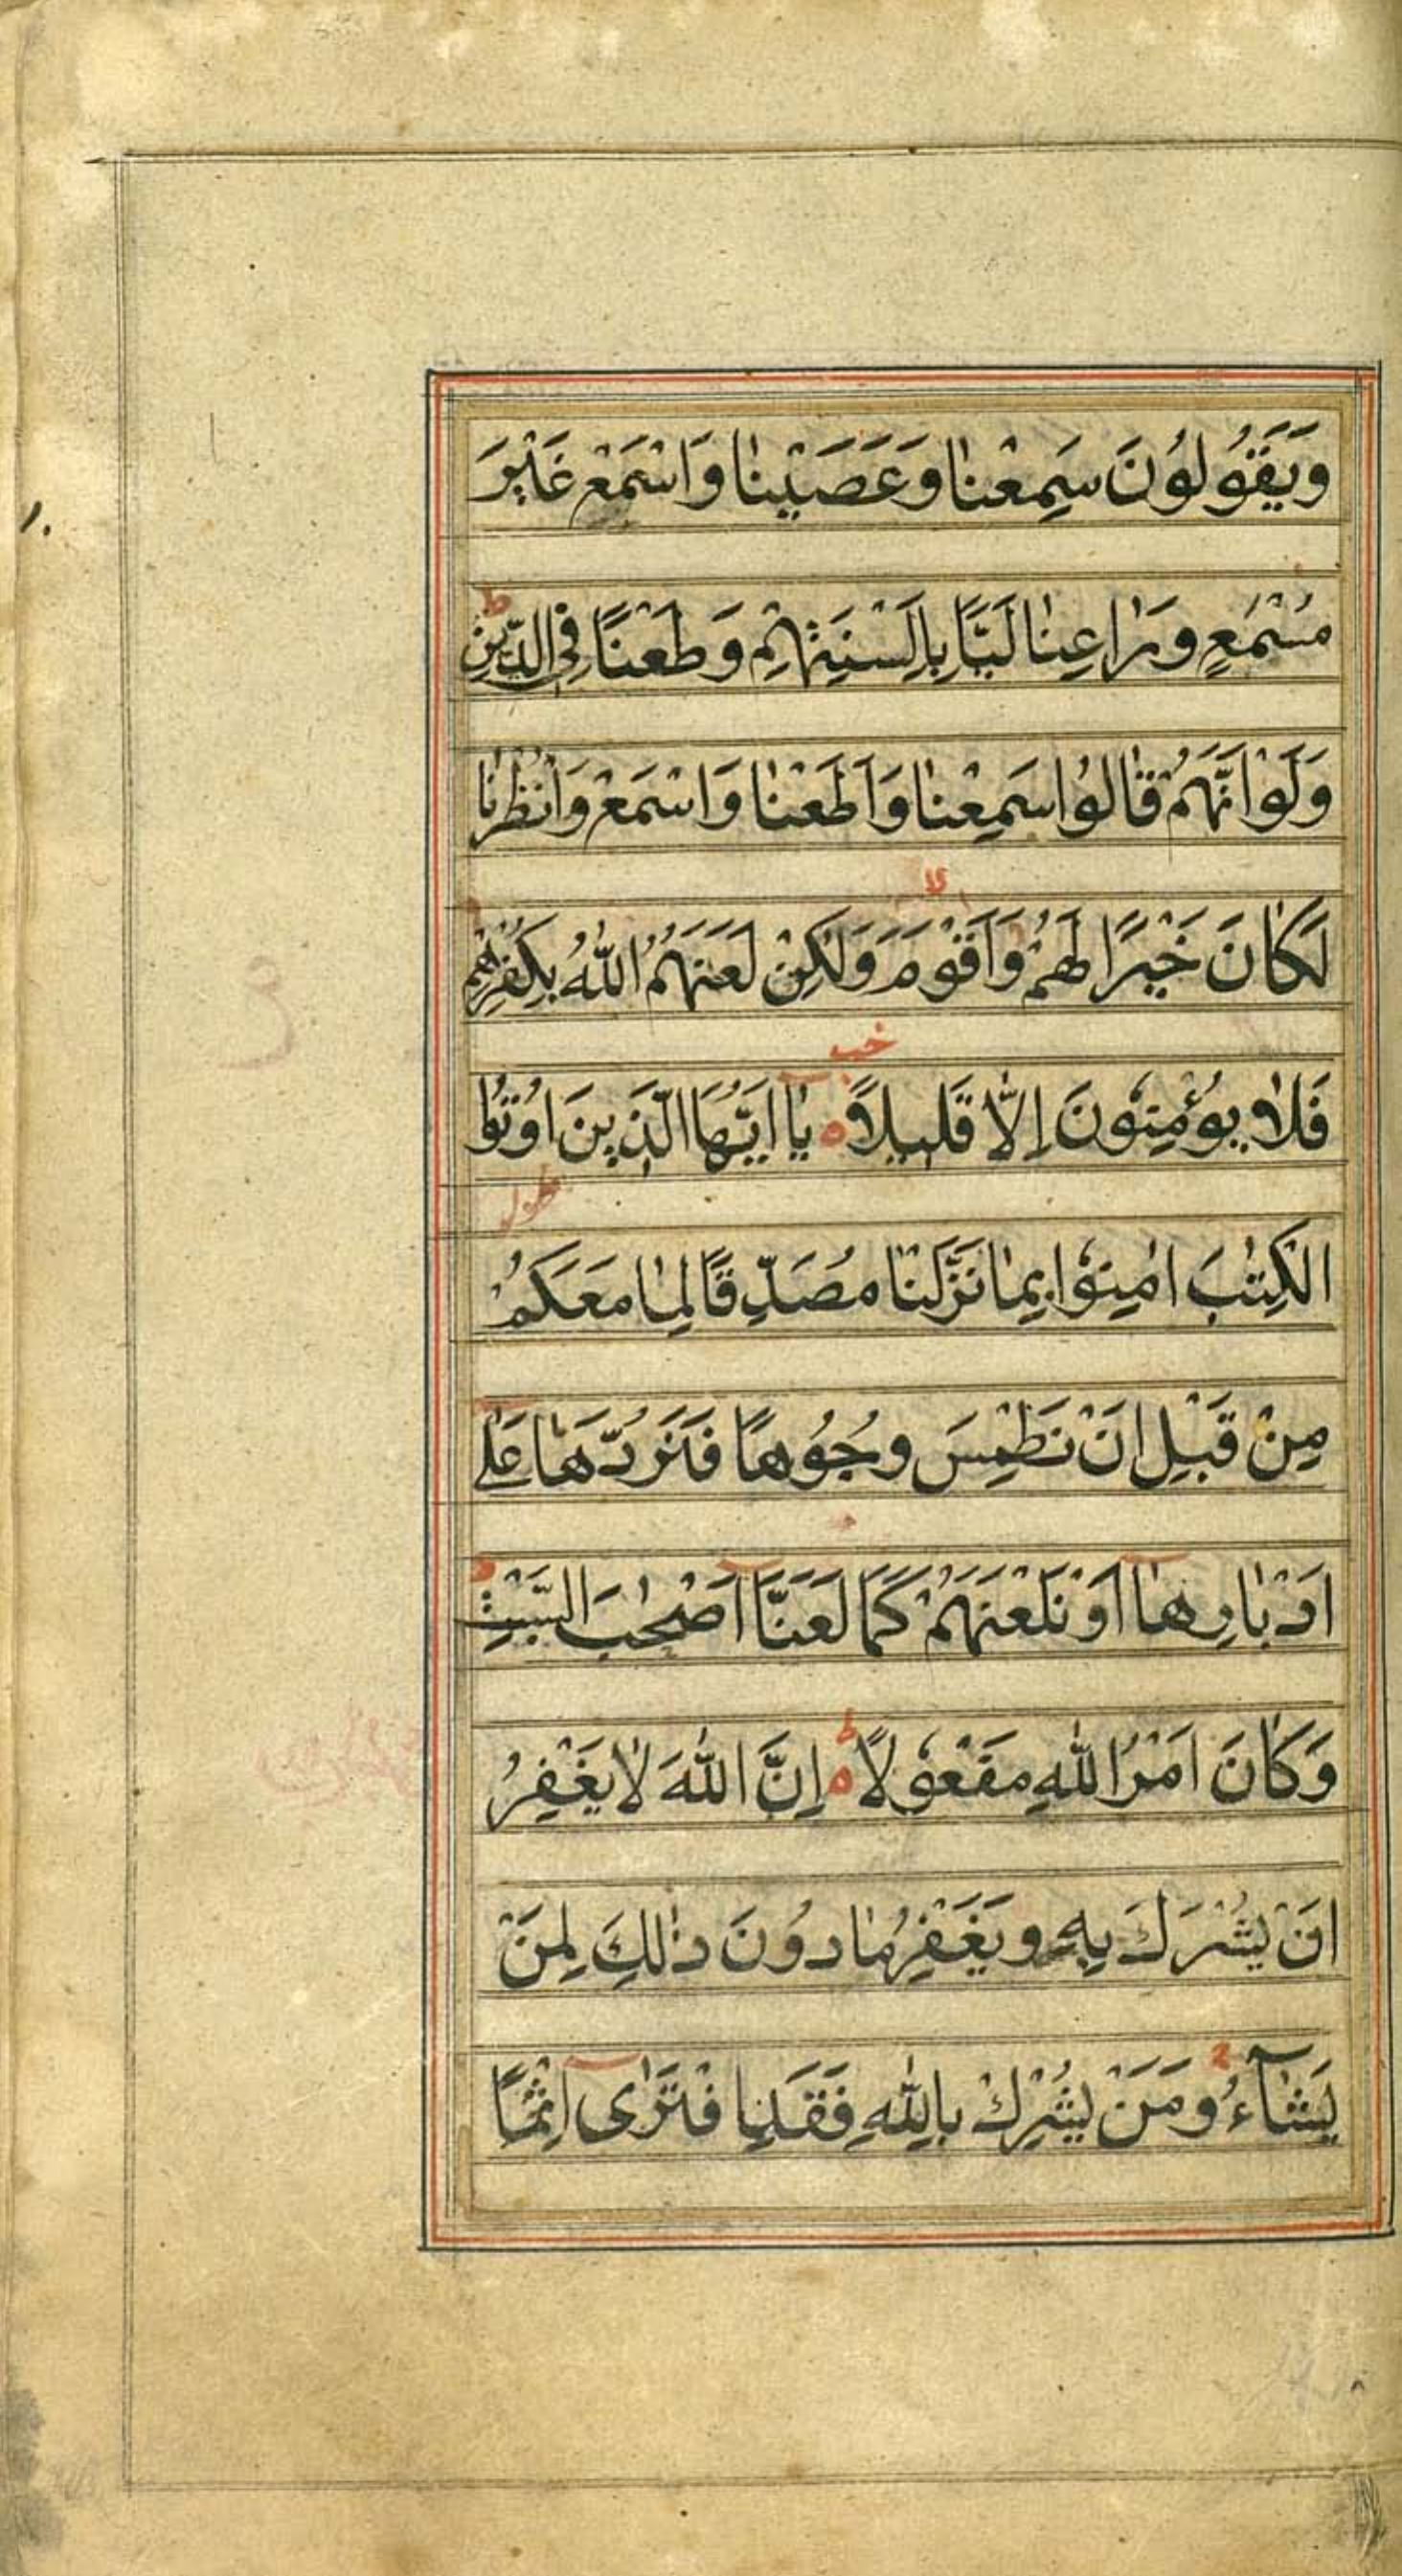 وَيَقُولُونَ سَمِعْنٰا وَعَصَيْنٰا وَاسْمَعْ غَيْرَ
مُسْمَعٍ وَرٰاعِنٰا لَيًّا بِاَلْسِنَتِهِمْ وَطَعْنًا فِى الدّٖينِ ط
وَلَوْ اَنَّهُمْ قٰالُوا سَمِعْنٰا وَاَطَعْنٰا وَاسْمَعْ وَانْظُرْنٰا
لَكٰانَ خَيْرًا لَهُمْ وَاَقْوَمَ وَلٰكِنْ لَعَنَهُمُ اللّٰهُ بِكُفْرِهِمْ
فَلٰا يُؤْمِنُونَ اِلّٰا قَلٖيلًا ه يٰا اَيُّهَا الَّذٖينَ اُوتُوا
الْكِتٰبَ اٰمِنُوا بِمٰا نَزَّلْنٰا مُصَدِّقًا لِمٰا مَعَكُمْ
مِنْ قَبْلِ اَنْ نَطْمِسَ وُجُوهًا فَنَرُدَّهٰا عَلٰى
اَدْبٰارِهٰا اَوْ نَلْعَنَهُمْ كَمٰا لَعَنَّا اَصْحٰبَ السَّبْتِ
وَكٰانَ اَمْرُ اللّٰهِ مَفْعُولًا ه ط اِنَّ اللّٰهَ لٰا يَغْفِرُ
اَنْ يُشْرَكَ بِهٖ وَيَغْفِرُ مٰا دُونَ ذٰلِكَ لِمَنْ
يَشٰآءُ وَمَنْ يُشْرِكْ بِاللّٰهِ فَقَدِ افْتَرٰى اِثْمًا